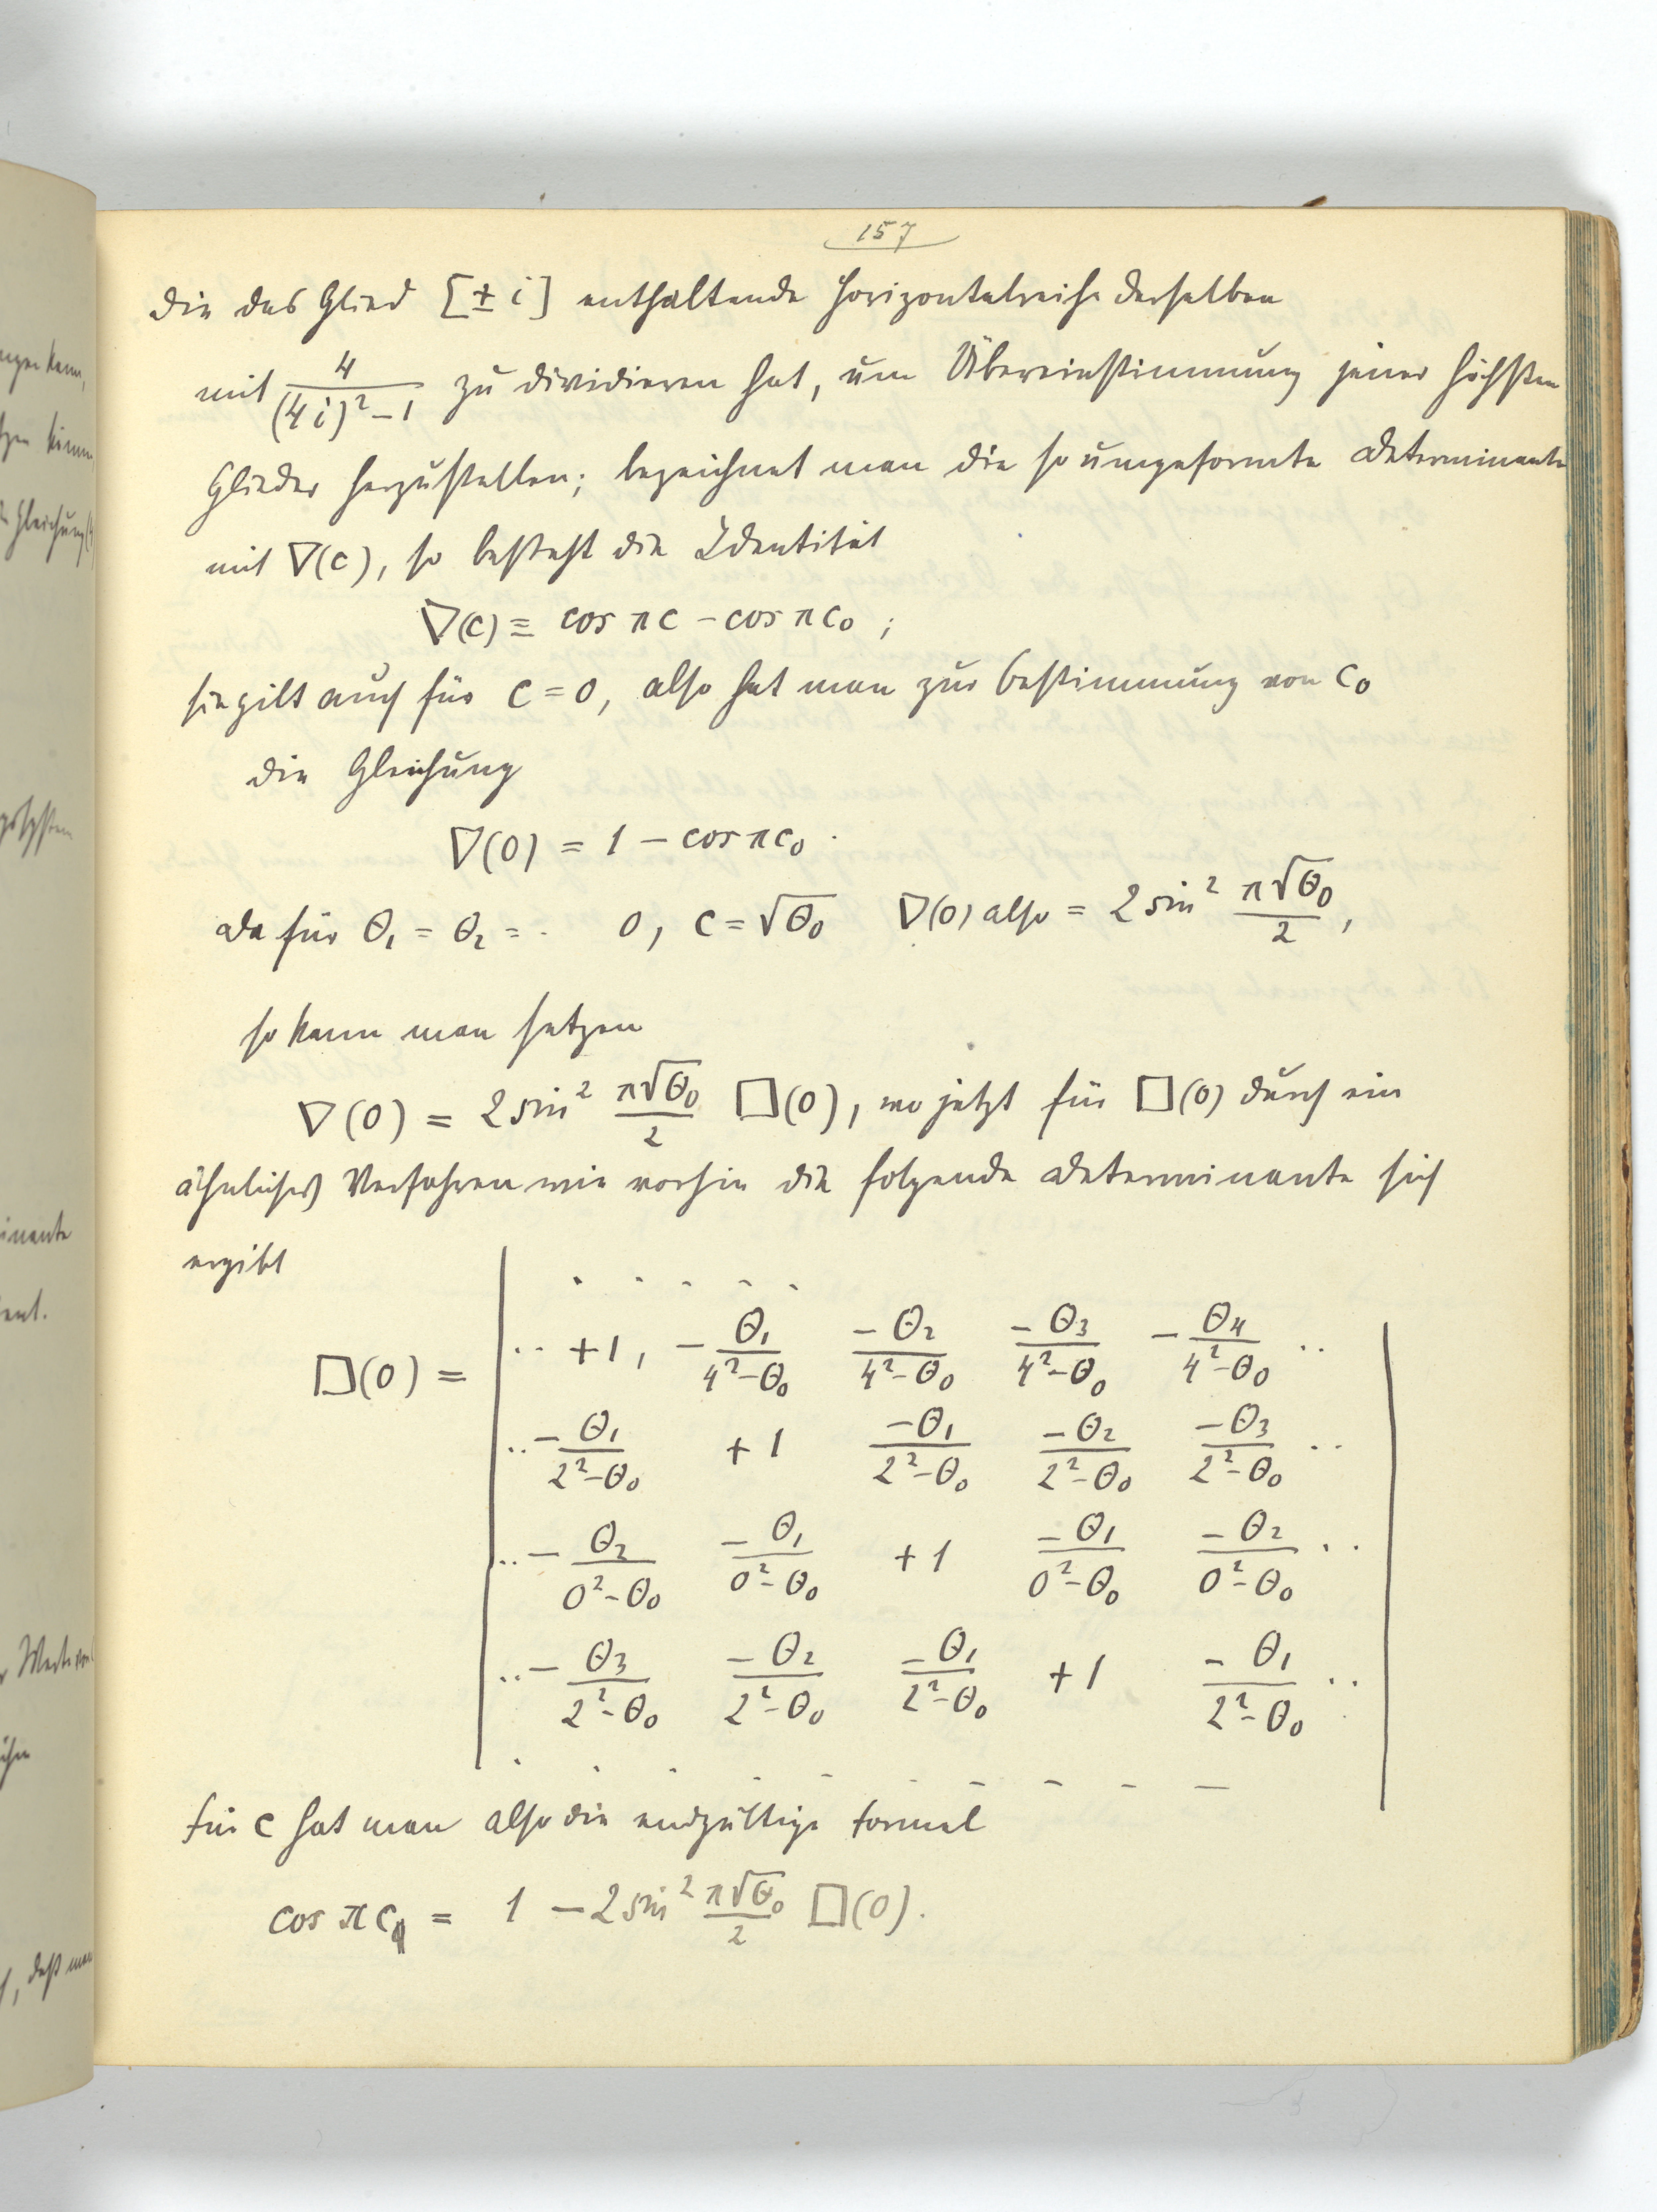 157
die das Glied [± i] enthaltende Horizontalreihe derselben
mit 4/((4i)²−1) zu dividieren hat, um Übereinstimmung jener höchsten
Glieder herzustellen; bezeichnet man die so umgeformte Determinante
mit ∇(c), so besteht die Identität
∇(c) ≡ cos πc − cos πc₀ ;
sie gilt auch für c = 0, also hat man zur Bestimmung von c₀
die Gleichung
∇(0) = 1 − cos πc₀ .
Da für Θ₁ = Θ₂ = · 0, c = √Θ₀ ∇(0) also = 2 sin² π√Θ₀/2 ,
so kann man setzen
∇(0) = 2 sin² π√Θ₀/2 □(0), wo jetzt für □(0) durch ein
ähnliches Verfahren wie vorhin die folgende Determinante sich
ergibt
. . . . .
□(0) = | ·· +1, −Θ₁/(4²−Θ₀) −Θ₂/(4²−Θ₀) −Θ₃/(4²−Θ₀) −Θ₄/(4²−Θ₀) ·· |
·· −Θ₁/(2²−Θ₀) +1 −Θ₁/(2²−Θ₀) −Θ₂/(2²−Θ₀) −Θ₃/(2²−Θ₀) ··
·· −Θ₂/(0²−Θ₀) −Θ₁/(0²−Θ₀) +1 −Θ₁/(0²−Θ₀) −Θ₂/(0²−Θ₀) ··
·· −Θ₃/(2²−Θ₀) −Θ₂/(2²−Θ₀) −Θ₁/(2²−Θ₀) +1 −Θ₁/(2²−Θ₀) ··
. . . . . . . . . .
Für c hat man also die endgültige Formel
cos πc₀ = 1 − 2 sin² π√Θ₀/2 □(0).